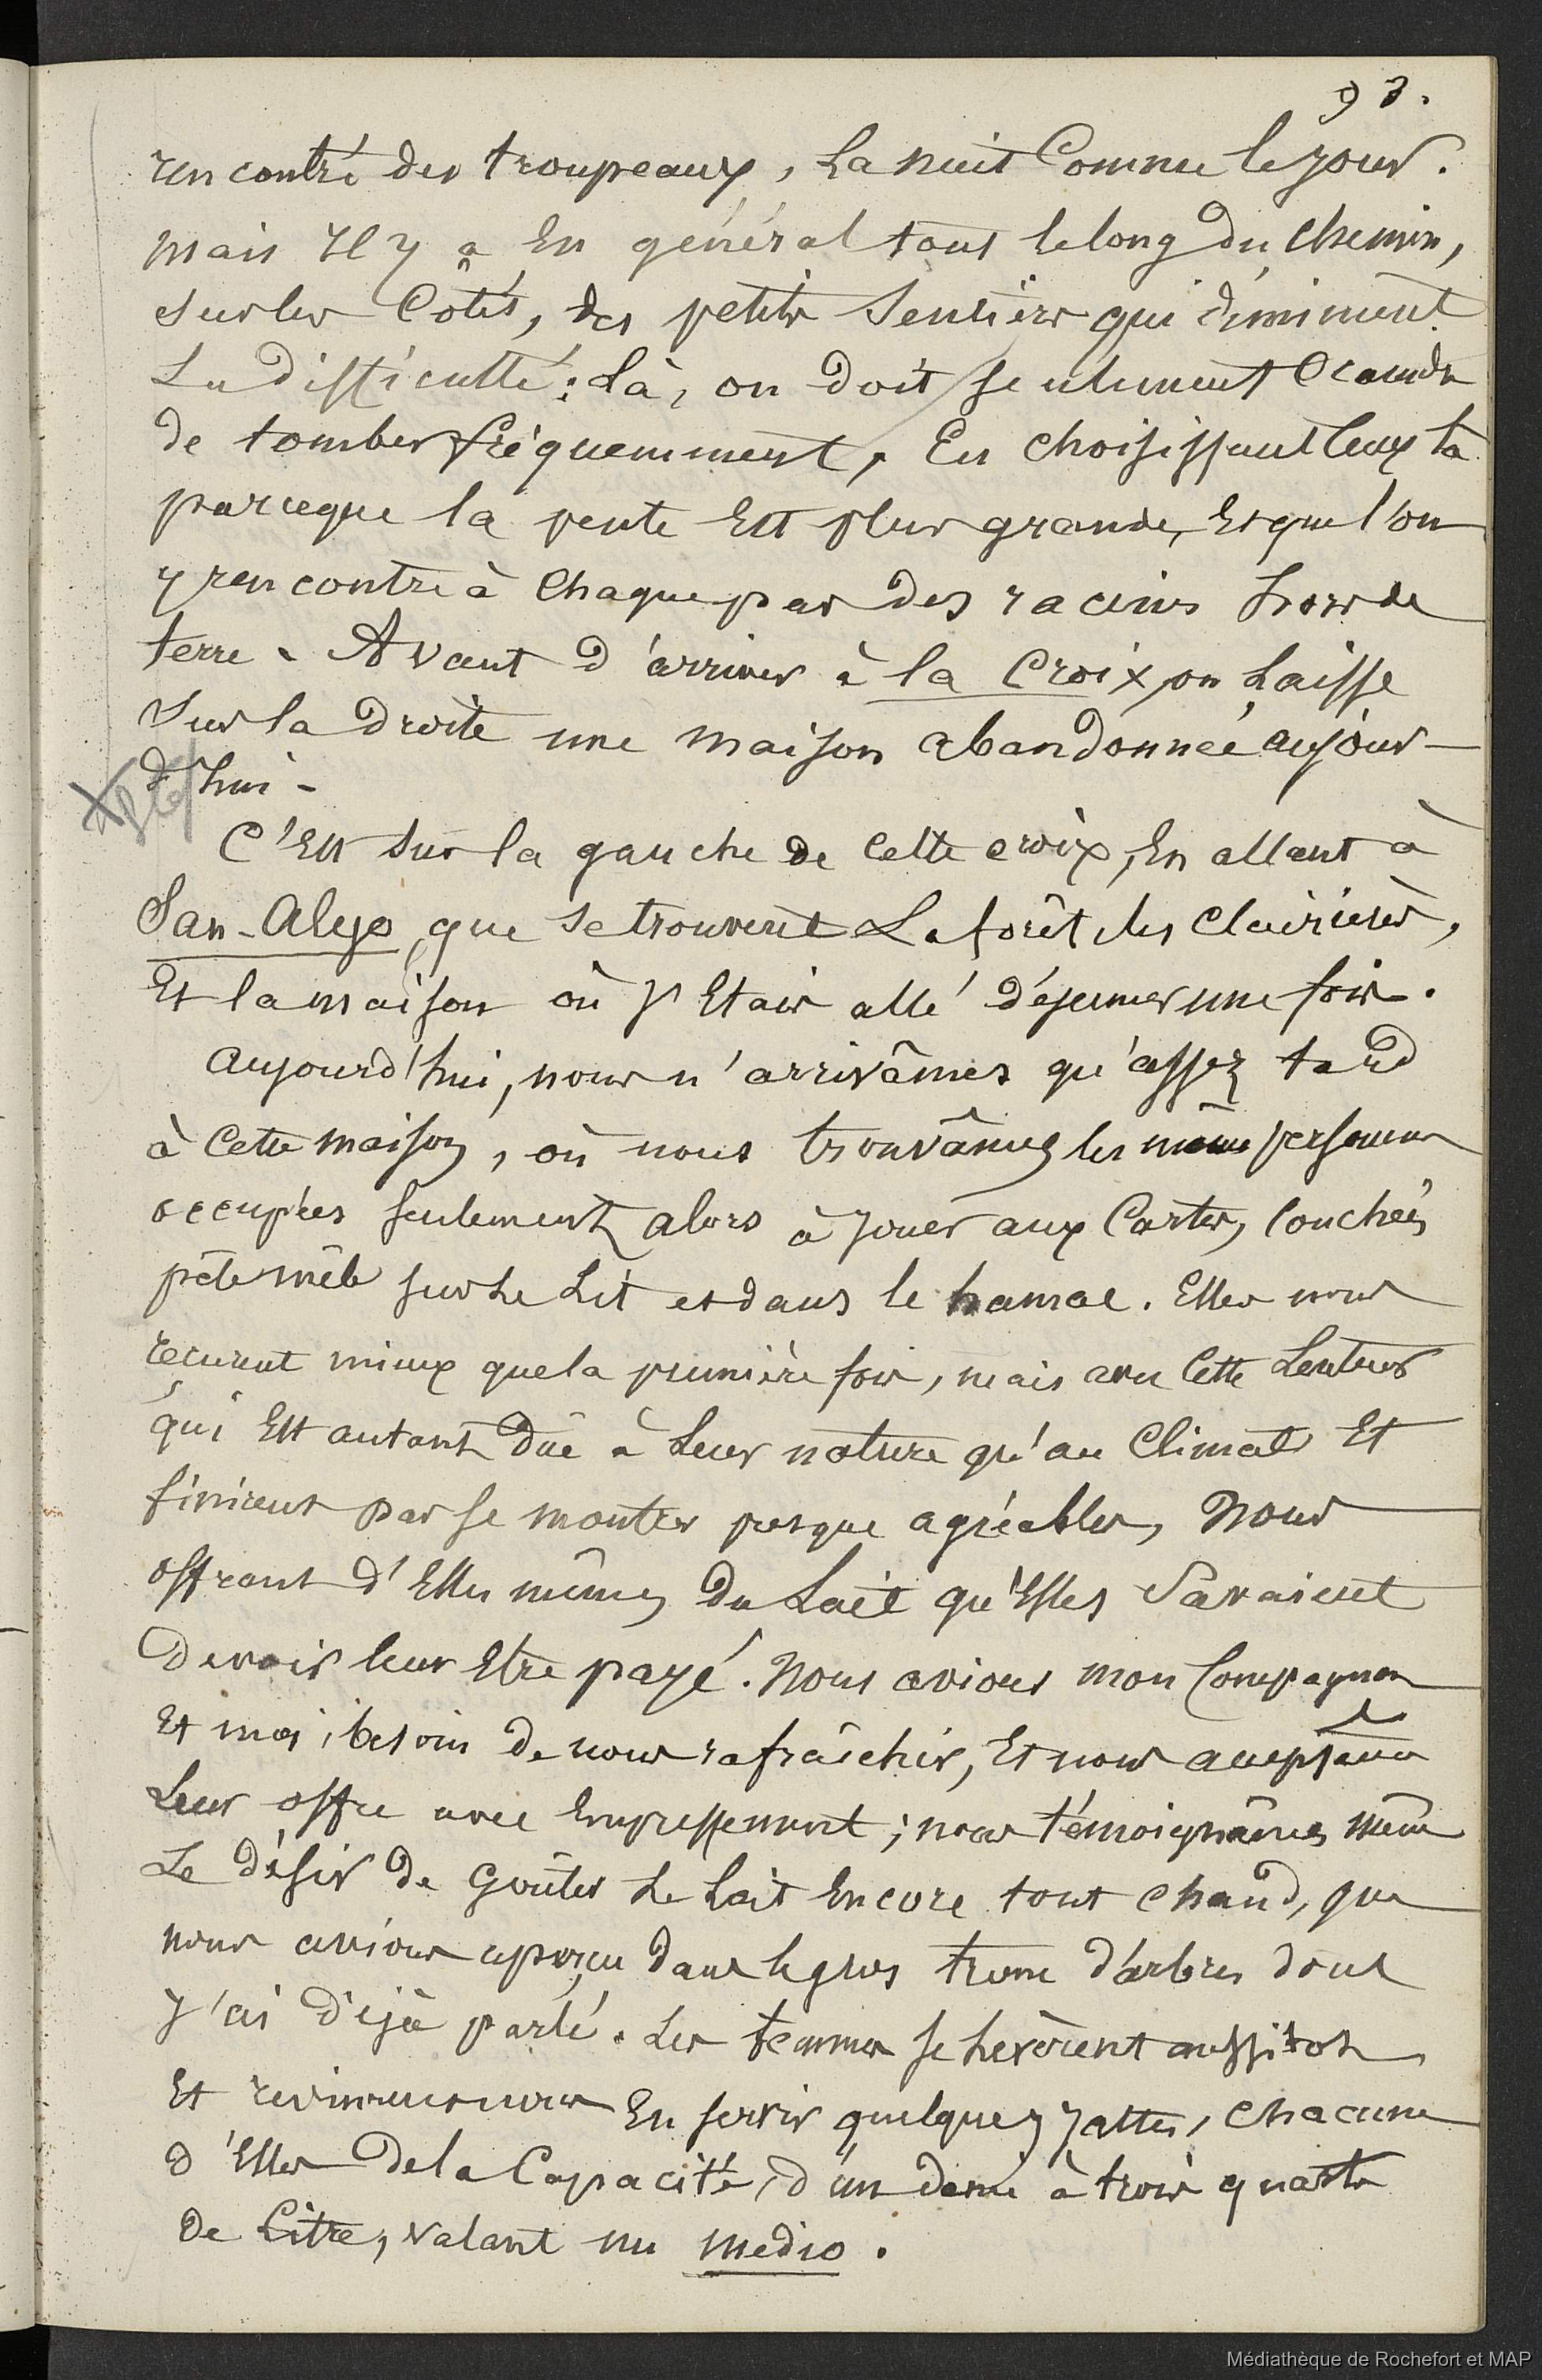 93.
rencontré des troupeaux, La nuit Comme le jour.
mais Il y a En général tout le long du chemin,
sur les Côtés, des petits Sentiers qui diminuent
La difficulté; Là, on doit seulement craindre
de tomber fréquemment, En choisissant ceux là
parceque la pente Est plus grande, Et que l'on
y rencontre à Chaque pas des racines hors de
terre. Avant d'arriver à la Croix, on Laisse
Sur la Droite une maison abandonnée aujour-
d'hui -
C'Est Sur la gauche de Cette croix, En allant à
San-Alejo, que se trouvent La forêt des Clairières,
Et la maison où J'Etais allé déjeuner une fois.
Aujourd'hui, nous n'arrivâmes qu'assez tard
à Cette maison, où nous trouvâmes les mêmes personnes
occupées seulement alors à jouer aux Cartes, Couchées
pêle mêle sur Le Lit et dans le hamac. Elles nous
reçurent mieux que la première fois, mais avec Cette Lenteur
qui Est autant Due à Leur nature qu'au Climat Et
finirent par se montrer presque agréables, Nous
offrant d'Elles mêmes Du Lait qu'Elles Savaient
Devoir leur Etre payé. Nous avions mon Compagnon
Et moi, besoin de nous rafraîchir, Et nous acceptâmes
Leur offre avec Empressement; nous témoignâmes même
Le désir de Goûter Le Lait Encore tout chaud, que
nous avions aperçu dans le gros tronc d'arbres dont
J'ai déjà parlé. Les femmes se Levèrent aussitôt
Et revinrent nous En servir quelques Jattes, chacune
d'Elles De la Capacité, d'un demi à trois quarts
de Litre, valant un medio.
Médiathèque de Rochefort et MAP